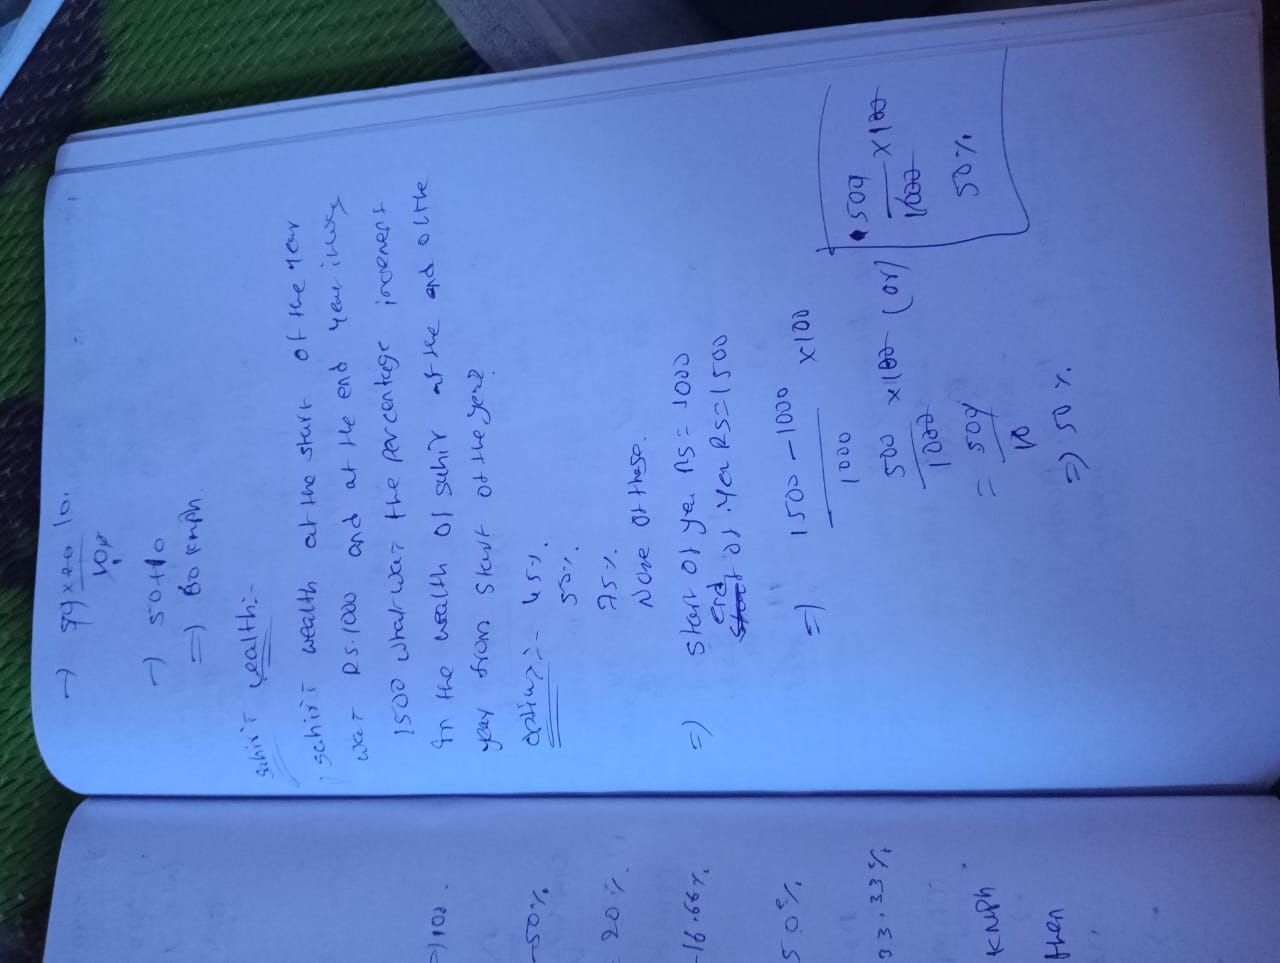 → 50 × 20 10
10
→ 50+10
⇒ 60 kmph
Sahir wealth:-
Sahir's wealth at the start of the year
was Rs.1000 and at the end year it was
1500 what was the percentage increment
In the wealth of sahir at the end of the
year from start of the year?
options:- 45%.
50%.
75%.
None of these.
⇒ start of yea Rs = 1000
end of yea Rs = 1500
⇒ 1500 - 1000 × 100
1000
500 × 100 (or) 500 × 100
1000 1000
= 500 50%
10
⇒ 50%.
100.
50%.
= 20%.
16.66%
50%
33.33%
KMPh
then